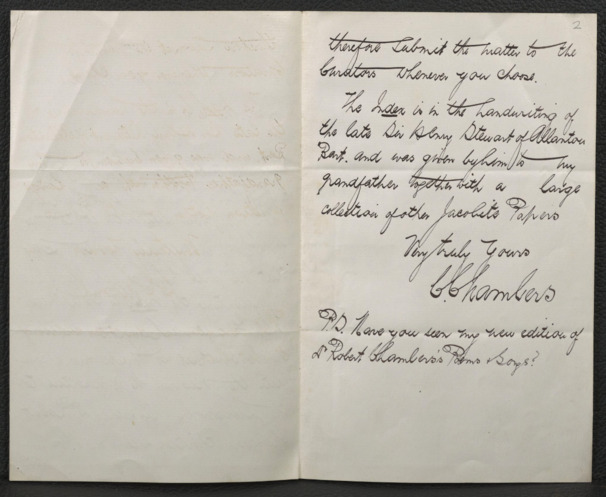 2
therefore submit the matter to the
Curators whenever you choose.
The Index is in the handwriting of
the late Sir Henry Stewart of Allanton
Bart. and was given by him to my
grandfather together with a large
collection of other Jacobite Papers
Very truly Yours
C. Chambers
P.S. Have you seen my new edition of
Dr Robert Chambers's Poems & Songs?